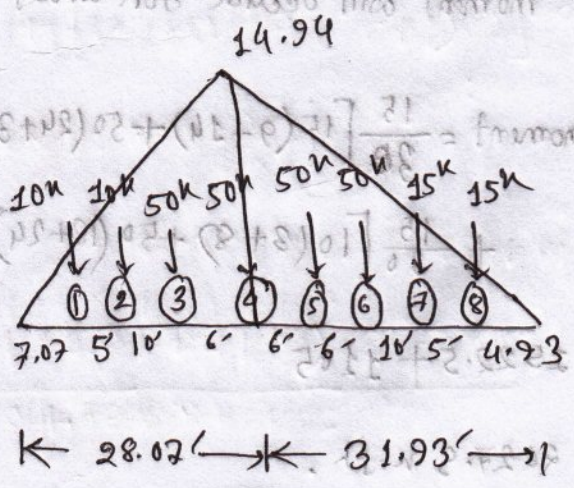 14.94
10ᵏ 10ᵏ 50ᵏ 50ᵏ 50ᵏ 50ᵏ 15ᵏ 15ᵏ
1 2 3 4 5 6 7 8
7.07 5' 10' 6' 6' 6' 10' 5' 4.93
28.07' 31.93'